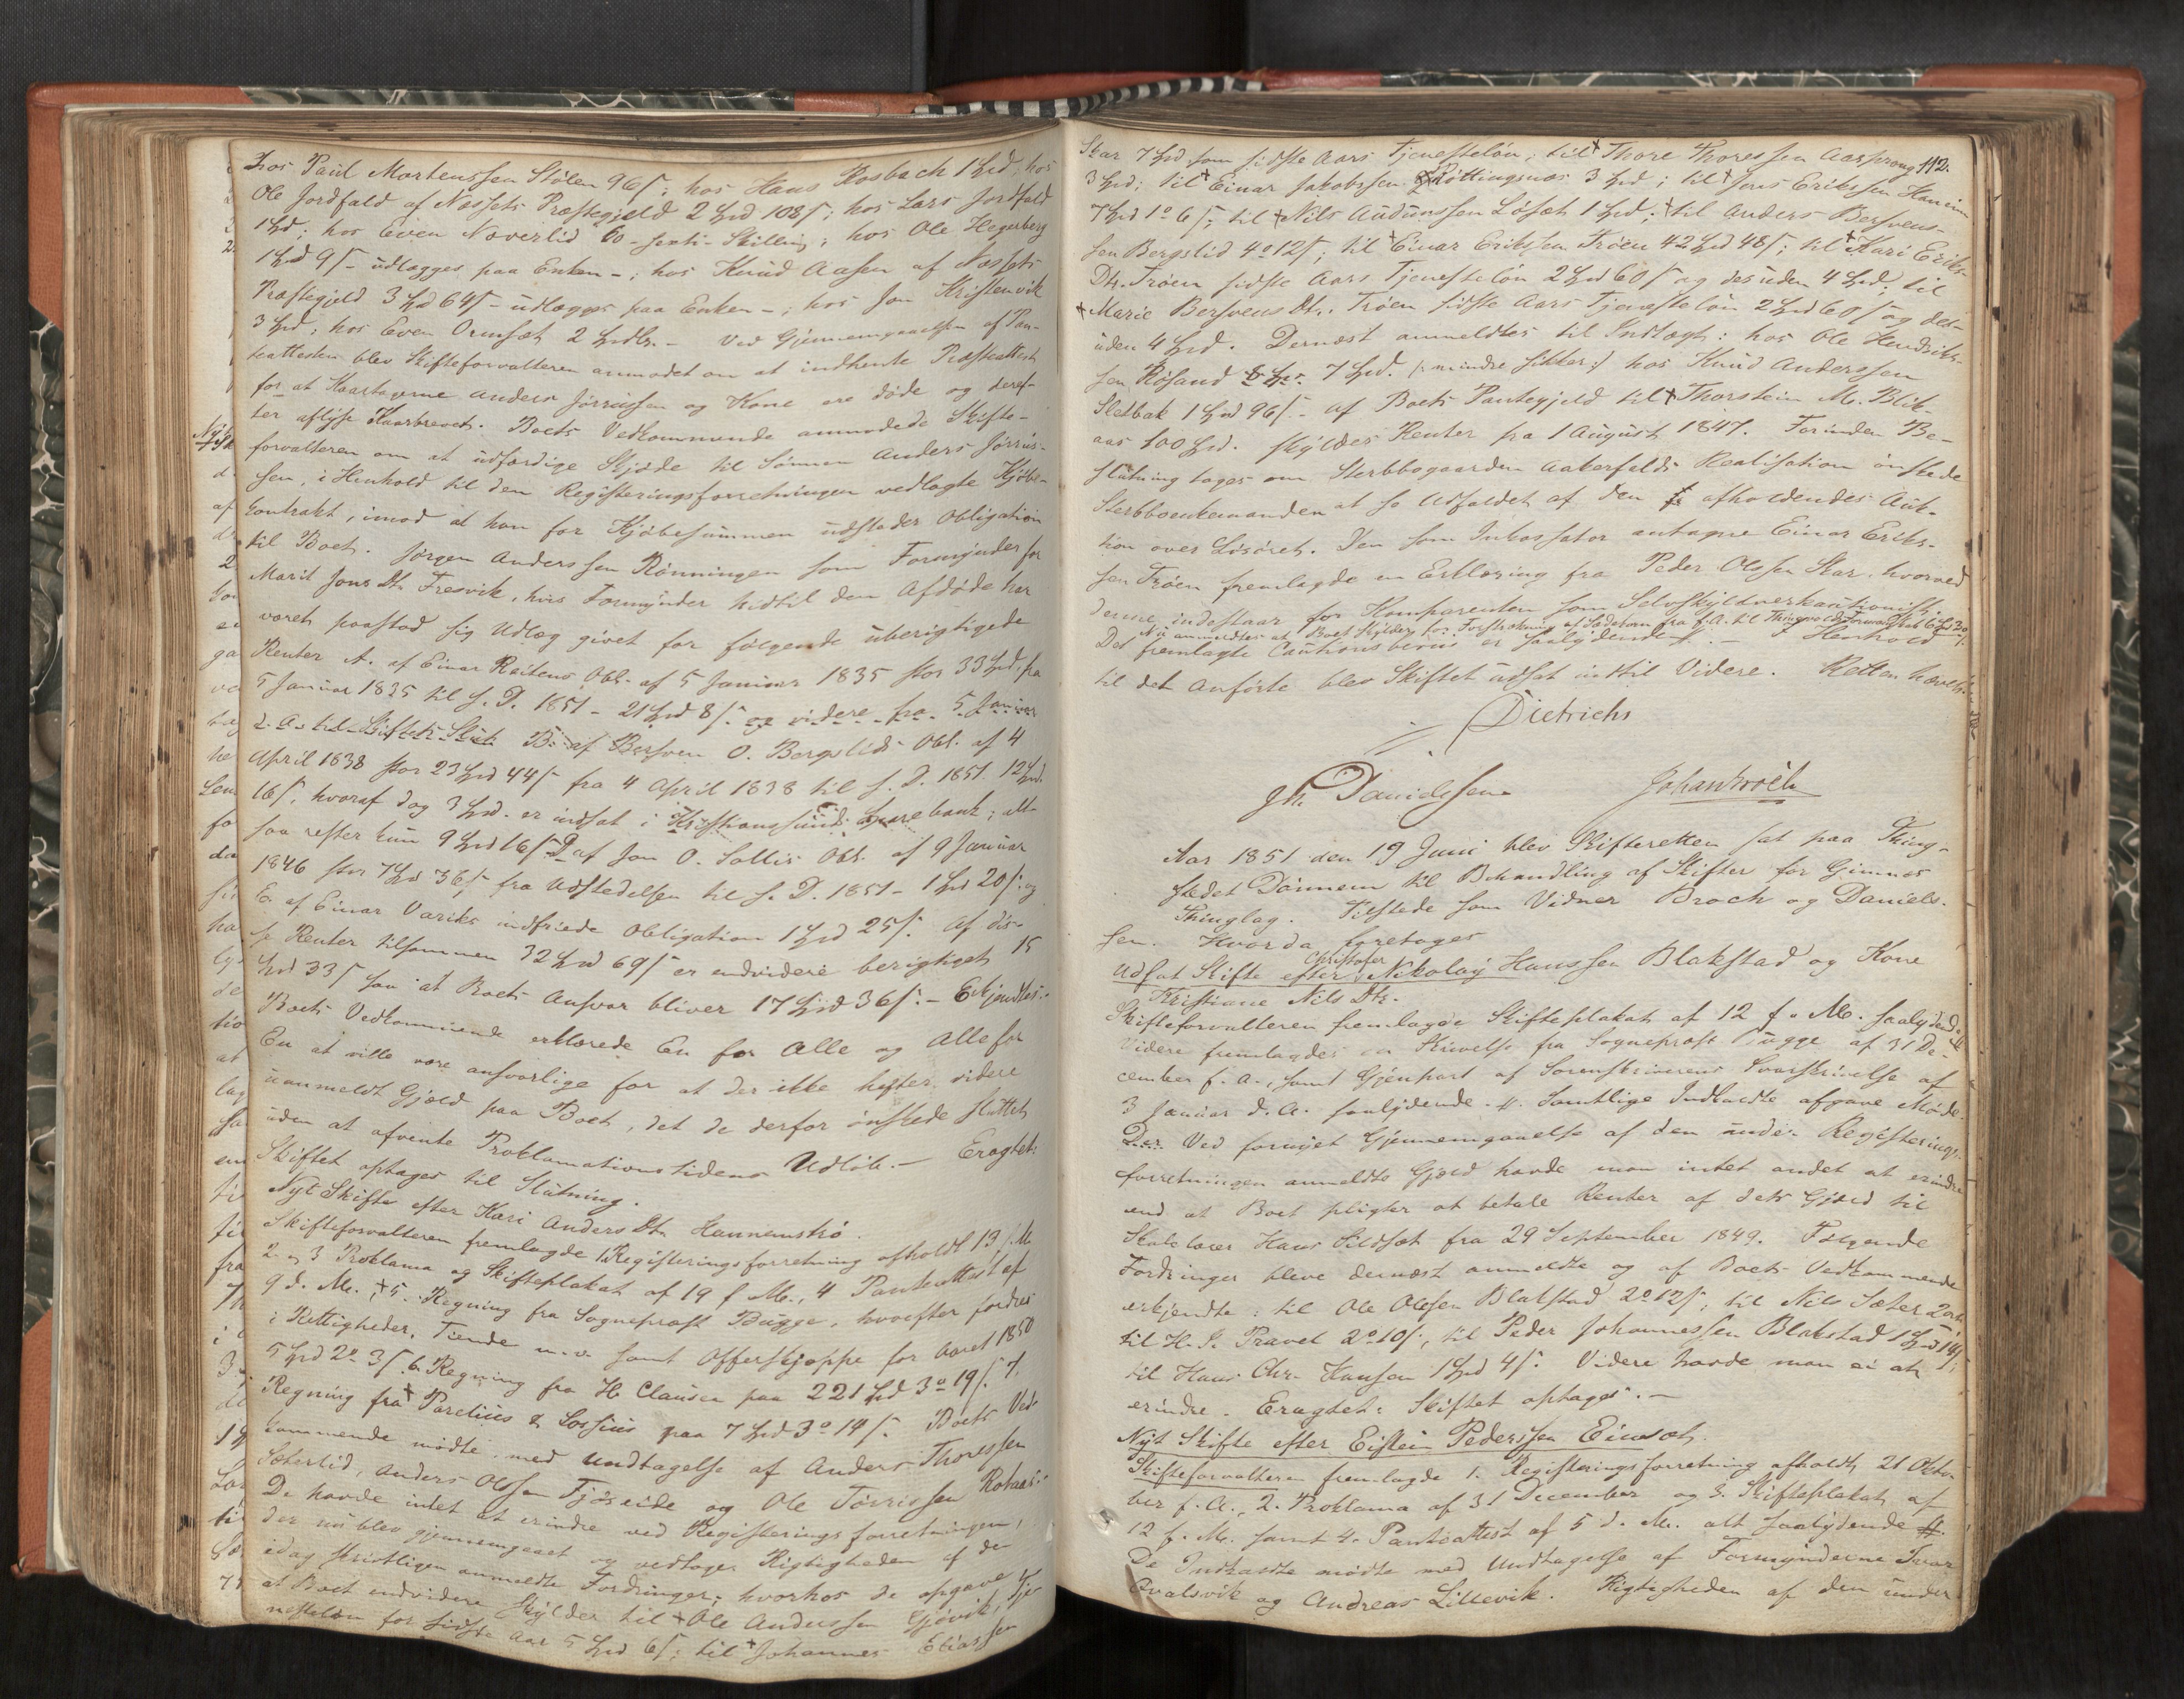 hos Paul Mortenssen Stølen 96 ß; hos Hans Rosbach 1 Spd; hos
Ole Jordfald af Næssets Præstegjeld 2 Spd 108 ß; hos Lars Jordfald
1 Spd; hos Even Naverlid 60 - sexti - Skilling; hos Ole Hegerberg
1 Spd 9 ß - udlægges paa Enken -; hos Knud Aasen af Næssets
Præstegjeld 3 Spd 64 ß - udlægges paa Enken -; hos Jon Kristenvik
3 Spd; hos Even Ormsæt 2 Spdlr. - Ved Gjennemgaaelsen af Pan-
teattesten blev Skifteforvalteren anmodet om at indhente Præsteattest
for at Kaartagerne Anders Jørrissen og Kone ere døde og deref-
ter aflyse Kaarbrevet. Boets Vedkommende anmodede Skifte-
forvalteren om at udfærdige Skjøde til Sønnen Anders Jørris-
sen, i Henhold til den Registeringsforretningen vedlagte Kjøbe-
Contrakt, imod at han for Kjøbesummen udsteder Obligation
til Boet. Jørgen Anderssen Rønningen som Formynder for
Marit Jons Dtr Fresvik, hvis Formynder hidtil den Afdøde har
været paastod sig Udlæg givet for følgende uberigtigede
Renter A. af Einar Reitens Obl. af 5 Januar 1835 stor 33 Spd, fra
5 Januar 1835 til s. D. 1851 - 21 Spd 8 ß. og videre fra 5 Januar
d. A. til Skiftets Slut. B. af Bersven O. Bergslids Obl. af 4
April 1838 stor 23 Spd 44 ß fra 4 April 1838 til s. D. 1851 12 Spd
16 ß, hvoraf dog 3 Spd. er indsat i Kristianssunds Sparebank; alt-
saa rester kun 9 Spd 16 ß D af Jon O. Sollis Obl. af 9 Januar
1846 stor 7 Spd 36 ß fra Udstedelsen til s. D. 1851 - 1 Spd 20 ß. og
E. af Einar Variks indfriede Obligation 1 Spd 25 ß. Af dis-
se Renter tilsammen 32 Spd 69 ß er endvidere berigtiget 15
Spd 33 ß saa at Boets Ansvar bliver 17 Spd 36 ß. - Erkjendtes.
Boets Vedkommende erklærede En for Alle og Alle for
En at ville være ansvarlige for at der ikke hefter videre
uanmeldt Gjæld paa Boet, det de derfor ønskede sluttet
uden at afvente Proklamationstidens Udløb. - Eragtet:
Skiftet optages til Slutning.
Nyt Skifte efter Kari Anders Dtr Hannemstrø.
Skifteforvalteren fremlagde 1 Registeringsforretning afholdt 13 f. M
2. og 3 Proklama og Skifteplakat af 19 f M., 4 Panteattest af
9 d. M., + 5. Regning fra Sogneprest Bugge, hvorefter fordres
i Rettigheder, Tiende m. v. samt Offerskjeppe for Aaret 1850
5 Spd 2 o 3 ß. 6. Regning fra H. Clausen paa 221 Spd 3 o 19 ß. 7.
Regning fra + Parelius & Lossius paa 7 Spd 3 o 14 ß. Boets Ved-
kommende mødte, med Undtagelse af Anders Thoressen
Sæterlid, Anders Olsen Fjøseide og Ole Tørrissen Rotnes.
De havde intet at erindre ved Registeringsforretningen,
der nu blev gjennemgaaet og vedtoges Rigtigheden af den
idag skriftligen anmeldte Fordringer; hvorhos de opgave
at Boet endvidere skylder til + Ole Anderssen Gjøvik, Tje-
nesteløn for sidste Aar 5 Spd 6 ß; til + Johannes Eliassen
112.
Skar 7 Spd som sidste Aars Tjenesteløn; til + Thore Thoressen Aasprong
3 Spd; til + Einar Jakobsen Røttingsnæs 3 Spd; til + Jens Erikssen Hanem
7 Spd 1 o 6 ß; til + Nils Audunssen Løset 1 Spd; + til Anders Bersvens-
sen Bergslid 4 o 12 ß; til + Einar Erikssen Trøen 42 Spd 48 ß; til + Kari Eriks
Dtr. Trøen sidste Aars Tjenesteløn 2 Spd 60 ß og desuden 4 Spd; til
+ Marie Bersvens Dtr. Trøen sidste Aars Tjenesteløn 2 Spd 60 ß og des-
uden 4 Spd. Dernæst anmeldtes til Indtægt: hos Ole Hendriks-
sen Røsand 7 Spd. (: mindre sikker :) hos Knud Anderssen
Sletbak 1 Spd 96 ß. - Af Boets Pantegjeld til + Thorstein M. Blik-
aas 100 Spd. skyldes Renter fra 1 August 1847. Forinden Be-
slutning tages om Sterbbogaarden Aakerfalds Realisation ønskede
Sterbboenkemanden at se Udfaldet af den afholdendes Auk-
tion over Løsøret. Den som Inkassator antagne Einar Eriks-
sen Trøen fremlagde en Erklæring fra Peder Olssen Skar, hvorved
denne indestaar for Komparenten som Selvskyldnerkautionist.
Nu anmeldtes at Boet skylder for Forstrækning af Sædekorn fra f. A. til Thingvolds Formandskab 6 Spd 30 ß.
Det fremlagte Cautionsbevis er saalydende #. - I Henhold
til det Anførte blev Skiftet udsat indtil Videre. Retten hævet.
Dietrichs
Jh. Danielssen Johan Broch
Aar 1851 den 19 Juni blev Skifteretten sat paa Thing-
stedet Dønnem til Behandling af Skifter for Gimnes
Thinglag. Tilstede som Vidner Broch og Daniels-
sen. Hvor da foretages
Christofer
Udsat Skifte efter Nikolay Hanssen Blakstad og Kone
Kristiane Nils Dtr.
Skifteforvalteren fremlagde Skifteplakat af 12 f. M. saalydende #
Videre fremlagdes en Skrivelse fra Sogneprest Bugge af 31 De-
cember f. A., samt Gjenpart af Sorenskriverens Svarskrivelse af
3 Januar d. A. saalydende #. Samtlige Indkaldte afgave Møde.
Ved fornyet Gjennemgaaelse af den under Registerings-
forretningen anmeldte Gjæld havde man intet andet at erindre
end at Boet pligter at betale Renter af dets Gjæld til
Skolelærer Hans Sildset fra 29 September 1849. Følgende
Fordringer bleve dernæst anmeldte og af Boets Vedkommende
erkjendte: til Ole Olssen Blakstad 2 o 12 ß; til Nils Sæter 2 ort;
til H. S. Pravet 2 o 10 ß, til Peder Johannessen Blakstad 1 Spd 14 ß;
til Hans Chr. Hansen 1 Spd 4 ß. Videre havde man ei at
erindre. Eragtet: Skiftet optages. -
Nyt Skifte efter Eistein Pederssen Einset.
Skifteforvalteren fremlagde 1. Registeringsforretning afholdt 21 Okto-
ber f. A., 2. Proklama af 31 December og 3. Skifteplakat af
12 f. M. samt 4. Panteattest af 5 d. M. alt saalydende #.
De Indkaldte mødte med Undtagelse af Formynderne Ivar
Qvalsvik og Andreas Lillevik. Rigtigheden af den under